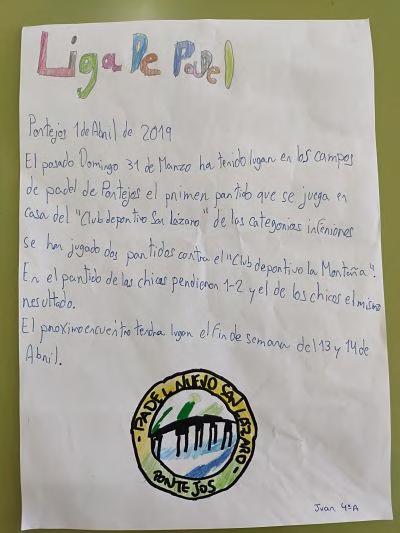 Liga De Padel
Pontejos 1 de Abril de 2019
El pasado Domingo 31 de Marzo ha tenido lugar en los campos
de padel de Pontejos el primer partido que se juega en
casa del "Club deportivo San Lázaro" de las categorias inferiores
se han jugado dos partidos contra el "Club deportivo la Montaña".
En el partido de las chicas perdieron 1-2 y el de los chicos el mismo
resultado.
El proximo encuentro tendra lugar el fin de semana del 13 y 14 de
Abril.
PADEL NUEVO SAN LAZARO
PONTEJOS
Juan 4ºA